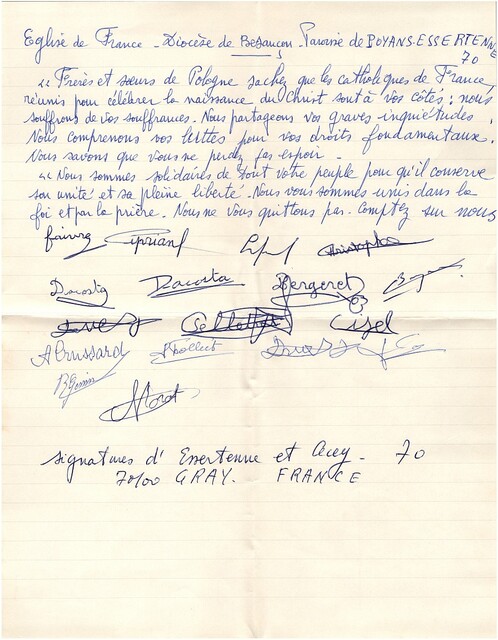 Eglise de France - Diocèse de Besançon - Paroisse de POYANS-ESSERTENNE
70
" Frères et sœurs de Pologne sachez que les catholiques de France,
réunis pour célébrer la naissance du Christ sont à vos côtés; nous
souffrons de vos souffrances. Nous partageons vos graves inquiétudes.
Nous comprenons vos luttes pour vos droits fondamentaux.
Nous savons que vous ne perdez pas espoir.
" Nous sommes solidaires de tout votre peuple pour qu'il conserve
son unité et sa pleine liberté. Nous vous sommes unis dans la
foi et par la prière. Nous ne vous quittons pas. Comptez sur nous
faivre Cipriani Christophe
Dacosta Dacosta Bergeret
Cizel
A Brussard
Morot
signatures d' Essertenne et Cecey - 70
70100 GRAY. FRANCE